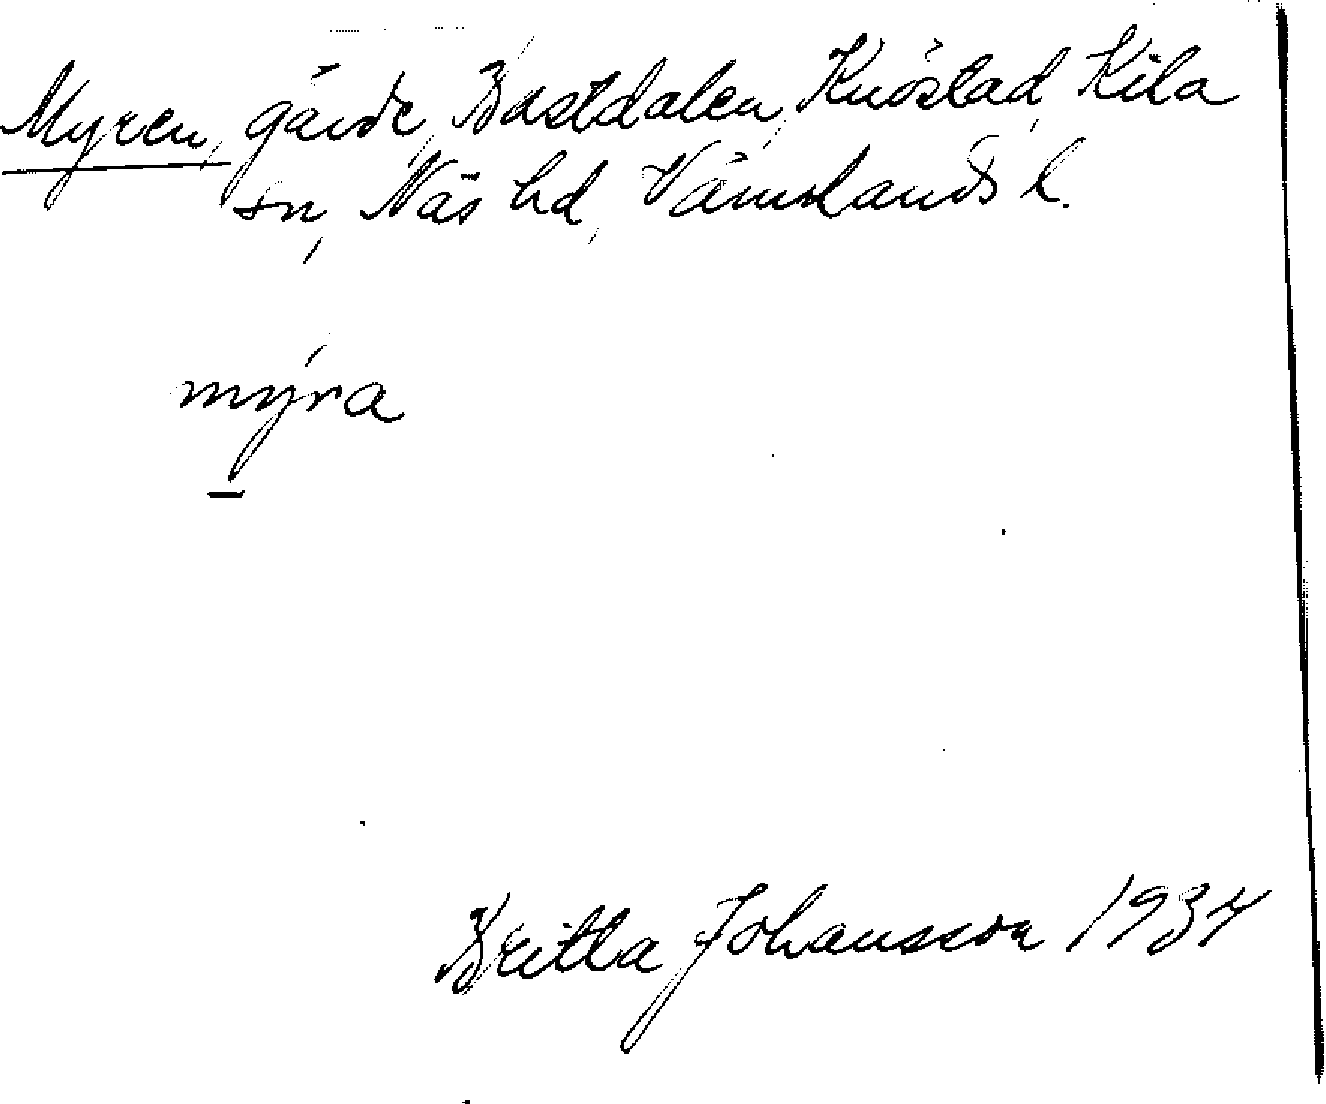 Myren, gärde, Bastdalen, Knöstad, Kila
sn, Näs hd, Värmlands l.
mýra
Britta Johansson 1934